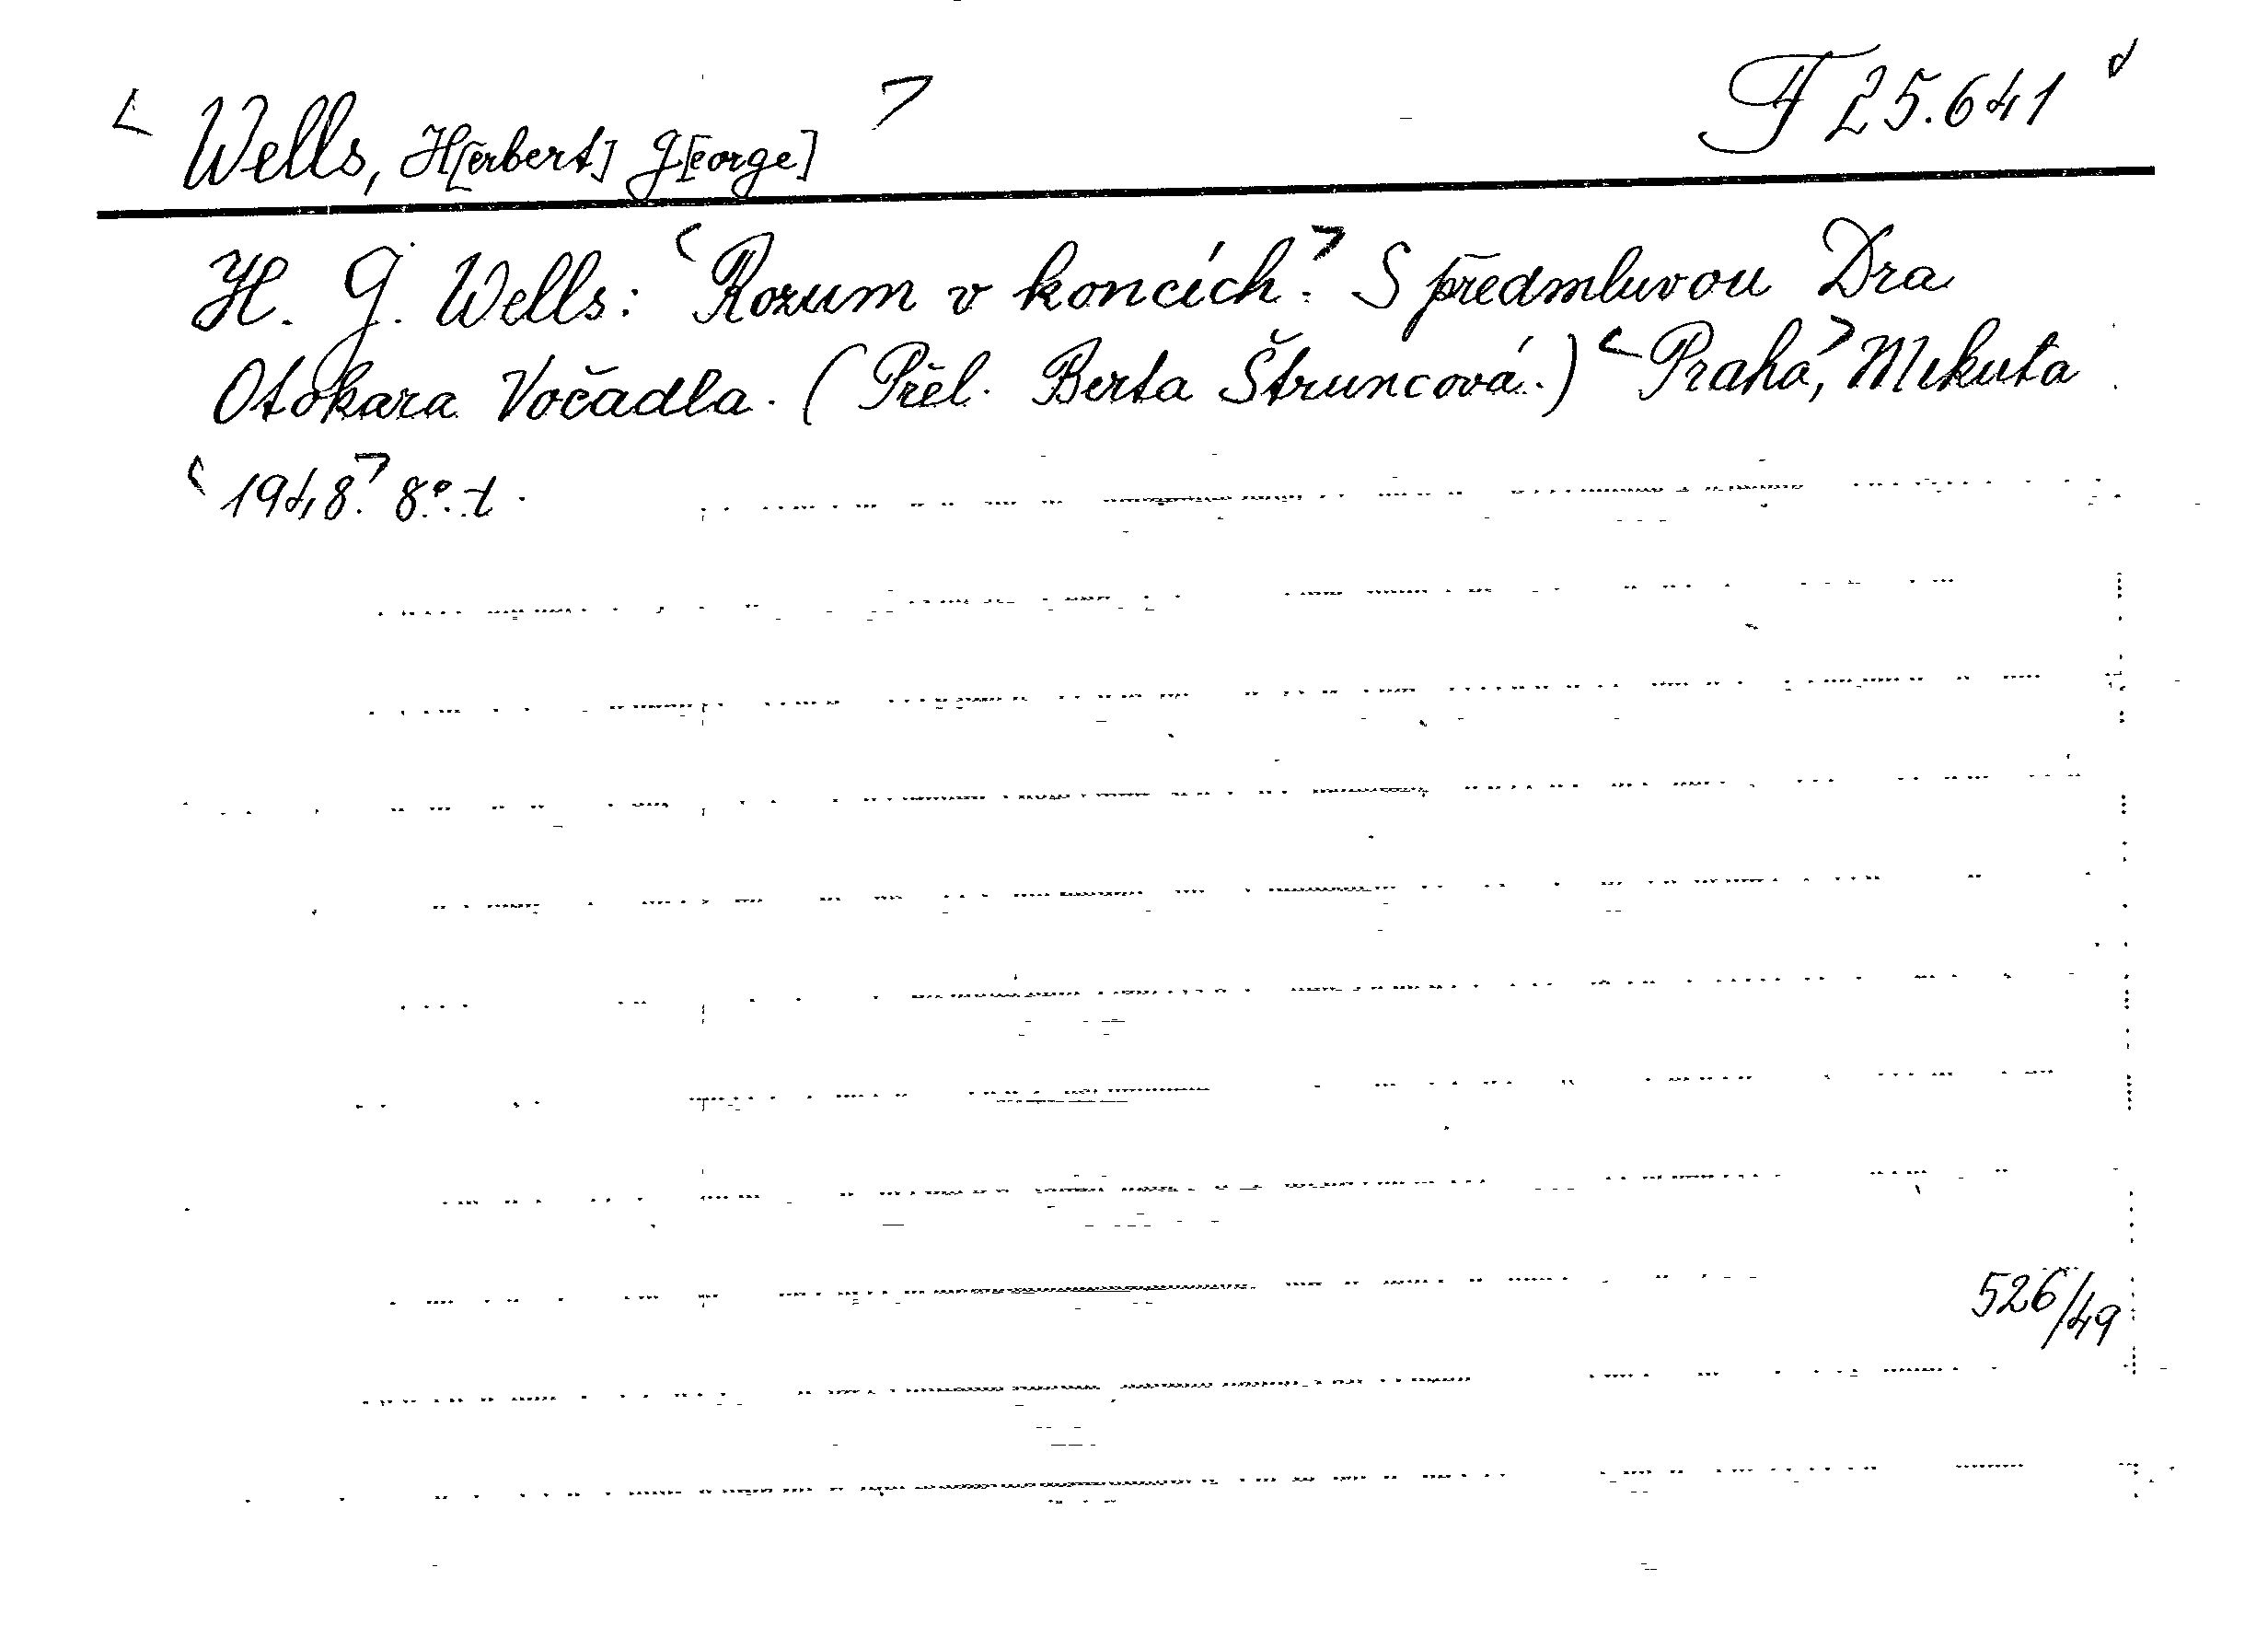 < Wells, H[erbert] G[eorge] > F 25.641
H. G. Wells: <Rozum v koncích.> S předmluvou Dra
Otokara Vočadla. (Přel. Berta Štruncová.) <Praha,> Mikuta
<1948.> 8°. t.
526/49